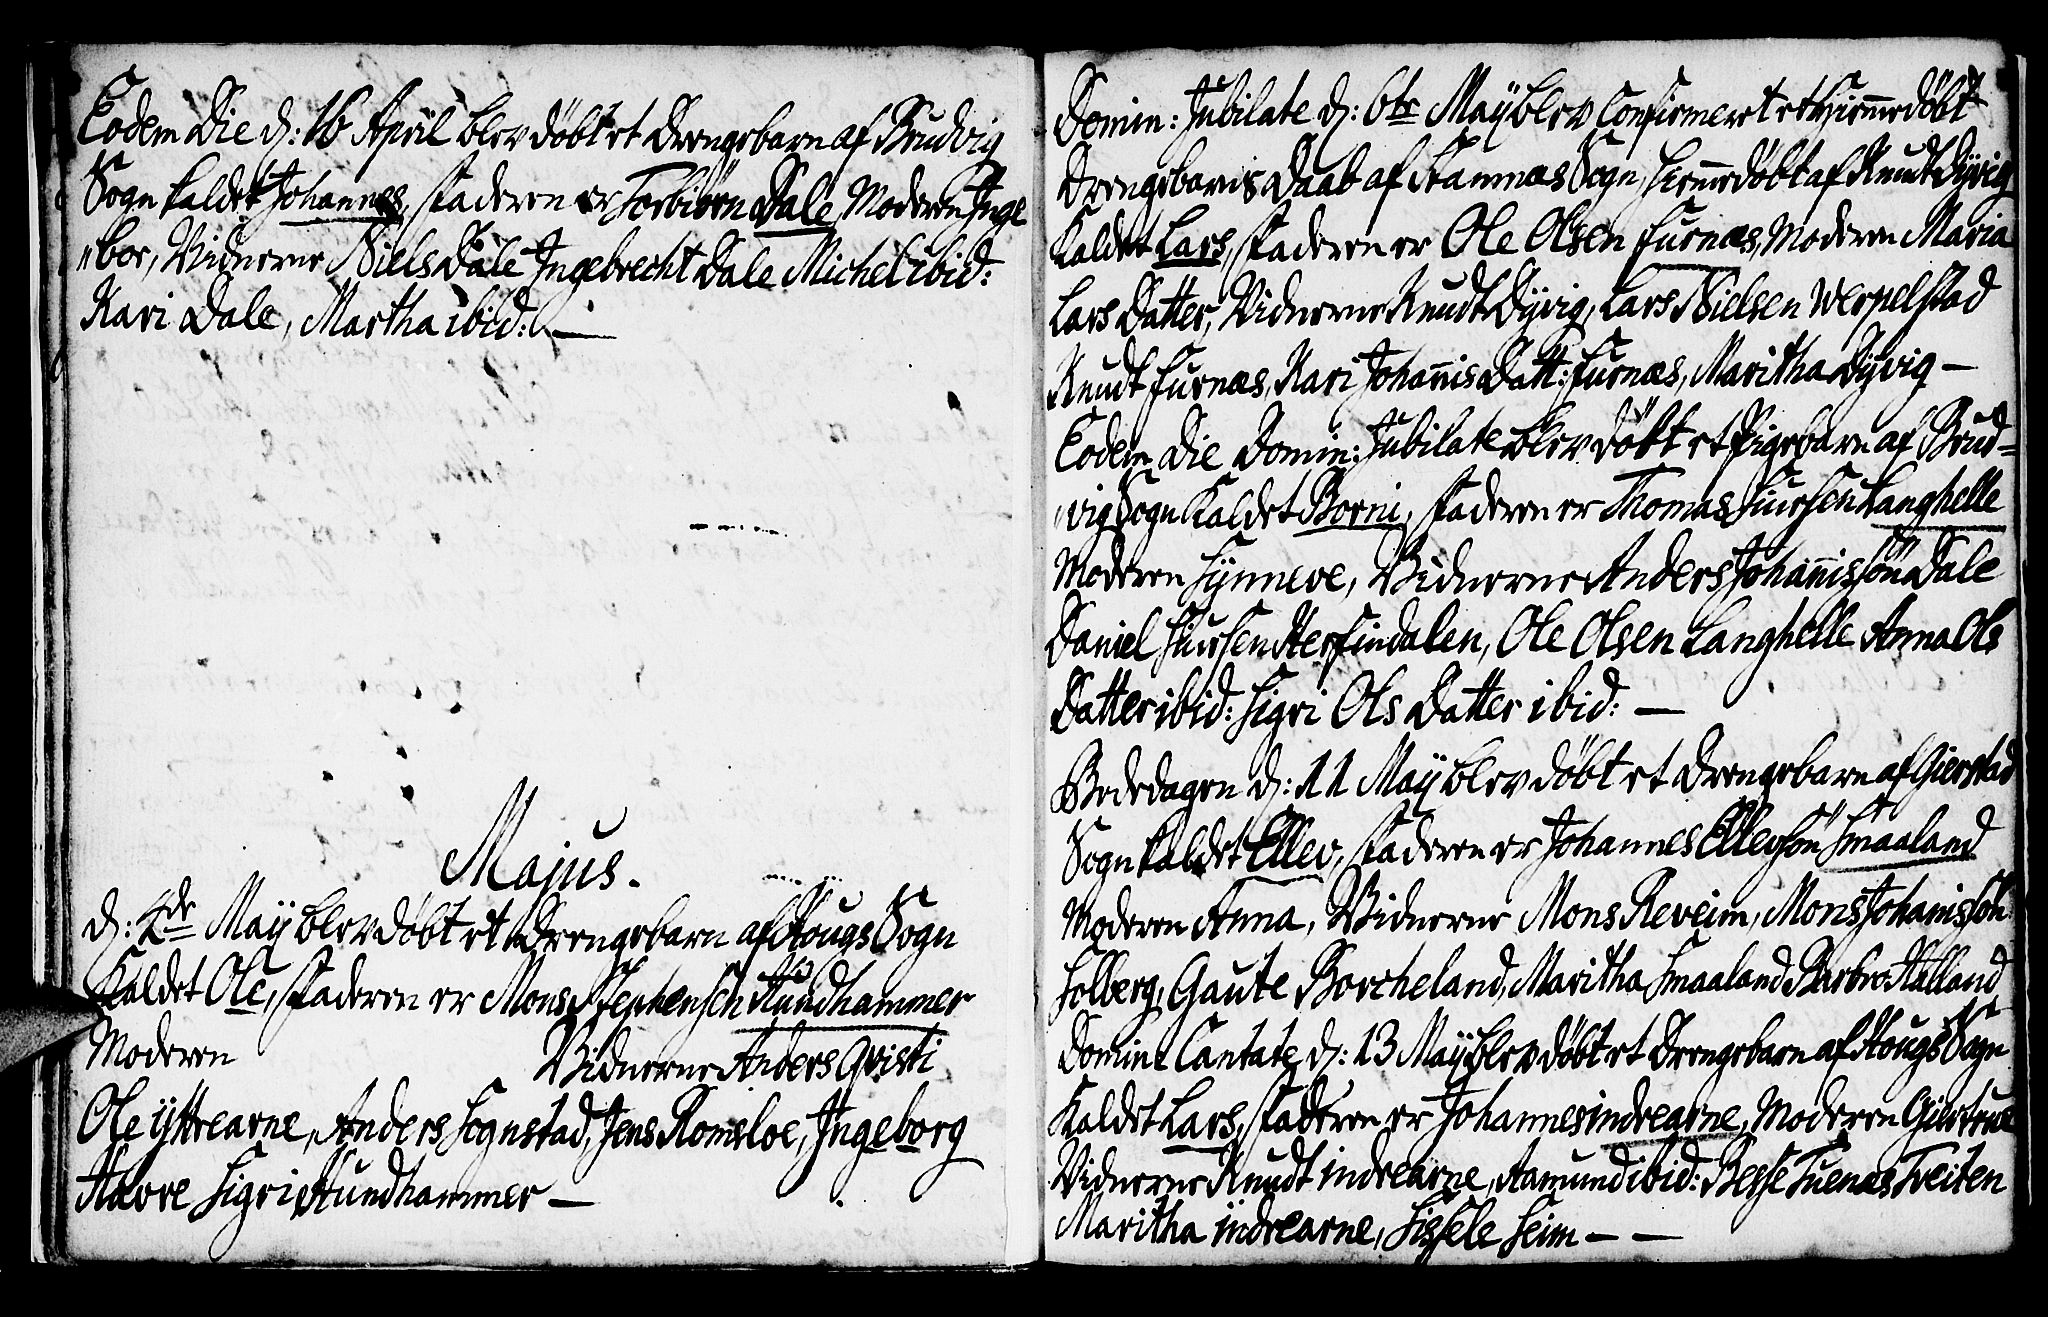 Eodem Die d: 16 April blev döbt et Drengebarn af Brudvig
Sogn kaldet Johannes, Faderen er Torbiörn Dale, Moderen Inge
"bor, Vidnerne Niels Dale Ingebrecht Dale Michel ibid:
Kari Dale, Martha ibid: —
Majus.
d: 4de Maÿ blev döbt et Drengebarn af Hougs Sogn
Kaldet Ole, Faderen er Mons Stephensen Hundhammer
Moderen Vidnerne Anders Qvisti
Ole ÿttrearne, Anders Sognstad, Jens Romsloe, Ingeborg
Havre Sigri Hundhammer —
Domin: Jubilate d: 6te Maÿ blev Confirmeret et Hiemmedöbt
Drengebarns Daab af Stamnæs Sogn, Hiemmedöbt af Knudt Dÿvig
Kaldet Lars, Faderen er Ole Olsen Furnæs, Moderen Maria
Lars Datter, Vidnerne Knudt Dÿvig, Lars Nielsen Werpelstad
Knudt Furnæs, Kari Johannis Datt: Furnæs, Maritha Dÿvig —
Eodem Die Domin: Jubilate blev döbt et Pigebarn af Brud=
"vig Sogn Kaldet Borni, Faderen er Thomas Siursen Langhelle
Moderen Sÿnneve, Vidnerne Anders Johannissön Dale
Daniel Siursen Herfindalen, Ole Olsen Langhelle Anna Ols
Datter ibid: Sigri Ols Datter ibid: —
Bededagen d: 11 Maÿ blev döbt et Drengebarn af Gierstad
Sogn kaldet Ellev, Faderen er Johannes Ellevsön Smaaland
Moderen Anna, Vidnerne Mons Reveim, Mons Johanissön
Solberg, Gaute Borcheland, Maritha Smaaland Barbro Halland
Domin: Cantate d: 13 Maÿ blev döbt et Drengebarn af Hougs Sogn
Kaldet Lars, Faderen er Johannes indrearne, Moderen Giertrue
Vidnerne Knudt indrearne, Aamund ibid: Besse Tuenæs Treiten
Maritha indrearne, Sissele Seim — —